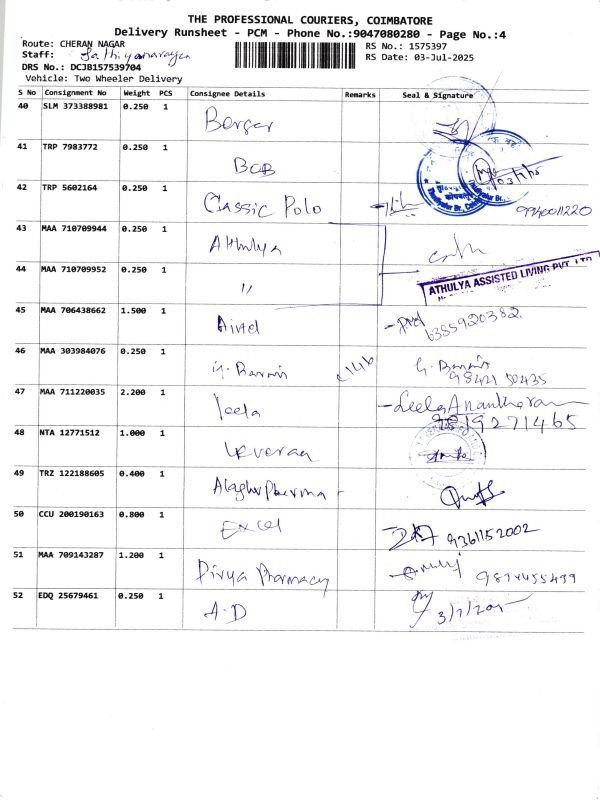 THE PROFESSIONAL COURIERS, COIMBATORE
Delivery Runsheet - PCM - Phone No.:9047080280 - Page No.:4
Route: CHERAN NAGAR
RS No.: 1575397
Staff: Sathiyanarayan
RS Date: 03-Jul-2025
DRS No.: DCJB157539704
Vehicle: Two Wheeler Delivery
S No Consignment No Weight PCS Consignee Details Remarks Seal & Signature
40 SLM 373388981 0.250 1 Berger
41 TRP 7983772 0.250 1 BOB
42 TRP 5602164 0.250 1 Classic Polo 9940011220
43 MAA 710709944 0.250 1 Athulya
44 MAA 710709952 0.250 1 "
ATHULYA ASSISTED LIVING PVT LTD
45 MAA 706438662 1.500 1 Airtel 6385920382
46 MAA 303984076 0.250 1
98421 50435
47 MAA 711220035 2.200 1 leela Leela Anantharam
9819271465
48 NTA 12771512 1.000 1
49 TRZ 122188605 0.400 1 Alaghu Pharma
50 CCU 200190163 0.800 1 Excel 9361152002
51 MAA 709143287 1.200 1 Divya Pharmacy
52 EDQ 25679461 0.250 1 A.D 3/7/2025